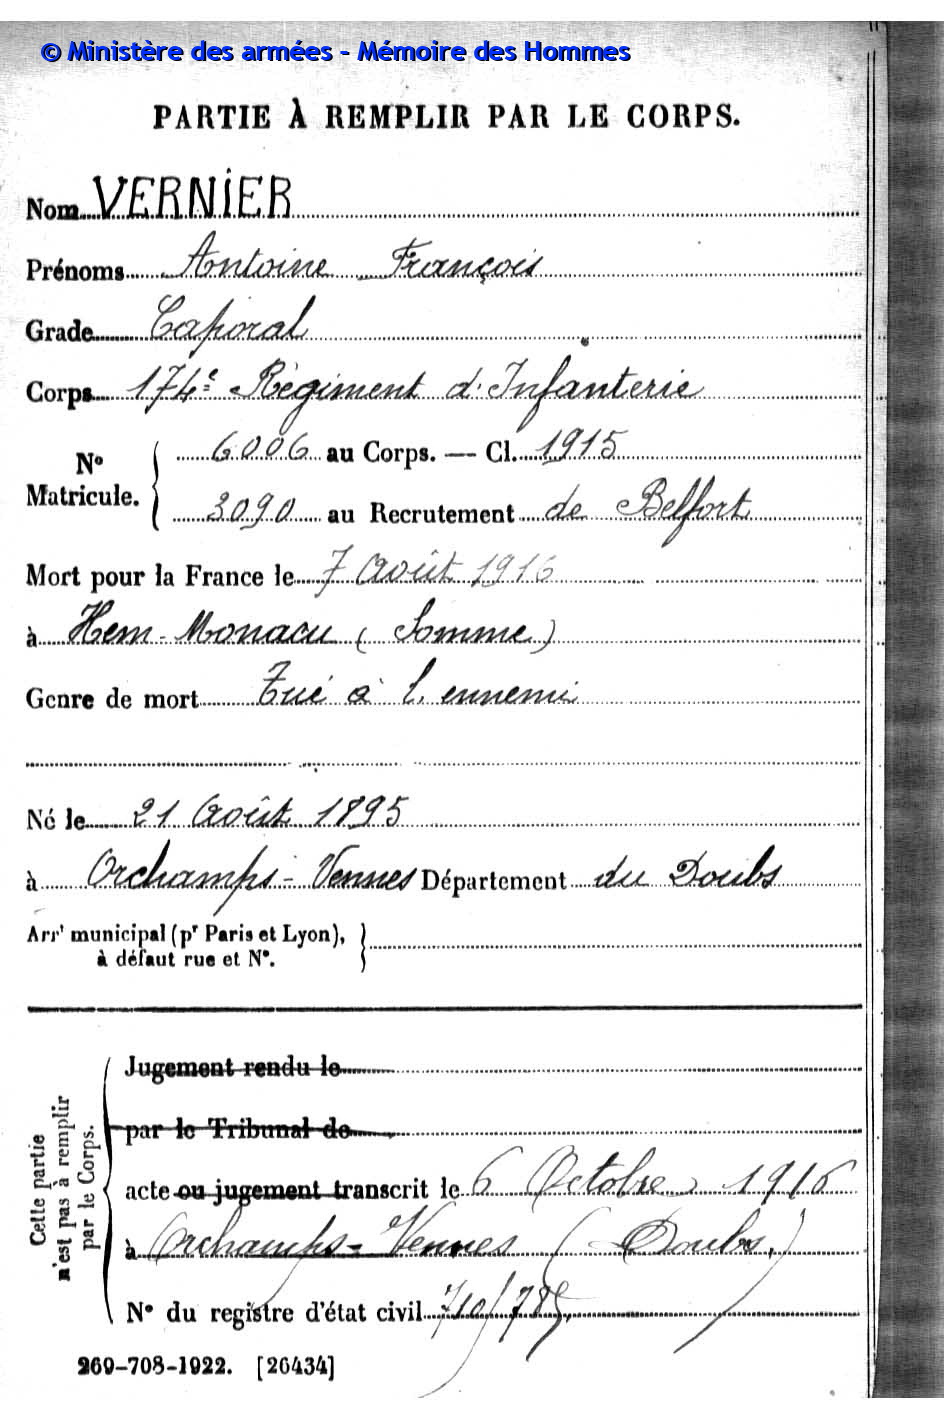 © Ministère des armées - Mémoire des Hommes
PARTIE À REMPLIR PAR LE CORPS.
Nom VERNIER
Prénoms Antoine François
Grade Caporal
Corps 174e Régiment d'Infanterie
N° Matricule. 6006 au Corps. — Cl. 1915
3090 au Recrutement de Belfort
Mort pour la France le 7 Août 1916
à Hem-Monacu (Somme)
Genre de mort Tué à l'ennemi
Né le 21 Août 1895
à Orchamps-Vennes Département du Doubs
Arrt municipal (pr Paris et Lyon),
à défaut rue et N°.
Cette partie
n'est pas à remplir
par le Corps.
Jugement rendu le
par le Tribunal de
acte ou jugement transcrit le 6 Octobre 1916
à Orchamps-Vennes (Doubs)
N° du registre d'état civil 710/785
269-708-1922. [26434]